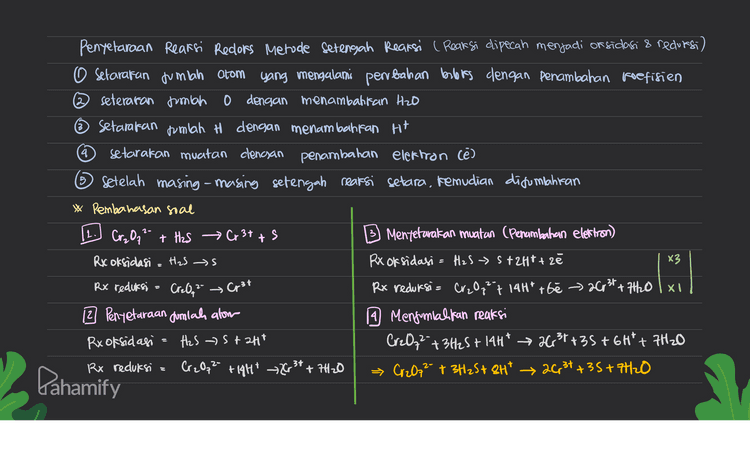 Penyetaraan Reaksi Redoks Metode Setengah Reaksi (Reaksi dipecah menjadi oksidasi & reduksi)
① Setarakan jumlah atom yang mengalami perubahan biloks dengan penambahan koefisien
② setarakan jumlah O dengan menambahkan H₂O
③ Setarakan jumlah H dengan menambahkan H⁺
④ setarakan muatan dengan penambahan elektron (ē)
⑤ Setelah masing-masing setengah reaksi setara, kemudian dijumlahkan
※ Pembahasan soal
1. Cr₂O₇²⁻ + H₂S → Cr³⁺ + S
Rx oksidasi = H₂S → S
Rx reduksi = Cr₂O₇²⁻ → Cr³⁺
2 Penyetaraan jumlah atom
Rx oksidasi = H₂S → S + 2H⁺
Rx reduksi = Cr₂O₇²⁻ + 14H⁺ → 2Cr³⁺ + 7H₂O
3 Menyetarakan muatan (Penambahan elektron)
Rx oksidasi = H₂S → S + 2H⁺ + 2ē x3
Rx reduksi = Cr₂O₇²⁻ + 14H⁺ + 6ē → 2Cr³⁺ + 7H₂O x1
4 Menjumlahkan reaksi
Cr₂O₇²⁻ + 3H₂S + 14H⁺ → 2Cr³⁺ + 3S + 6H⁺ + 7H₂O
⇒ Cr₂O₇²⁻ + 3H₂S + 8H⁺ → 2Cr³⁺ + 3S + 7H₂O
Pahamify